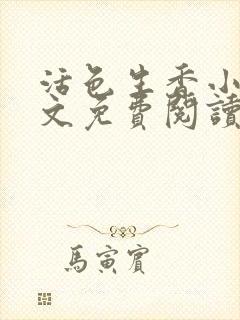 活色生香小
文免費閱讀
馬寅賓